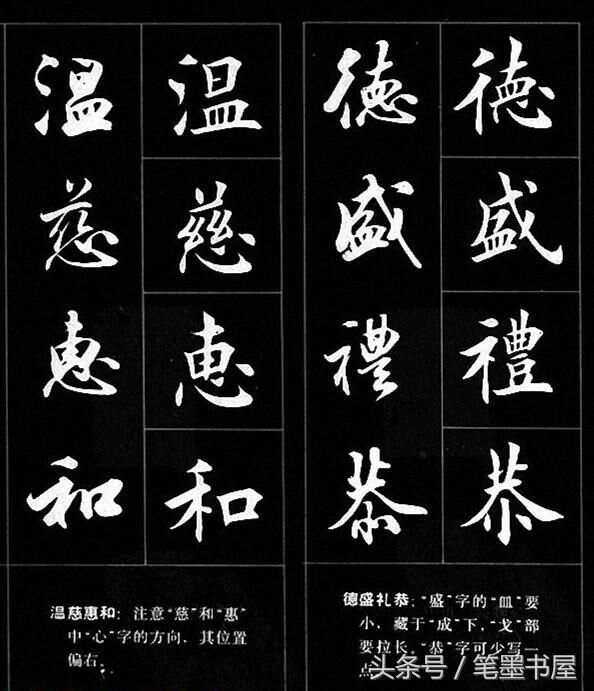 德盛禮恭
德盛禮恭
德盛礼恭：“盛”字的“皿”要
小，藏于“成”下，“戈”部
要拉长。“恭”字可少写一
点
温慈惠和
温慈惠和
温慈惠和：注意“慈”和“惠”
中“心”字的方向，其位置
偏右。
头条号 / 笔墨书屋